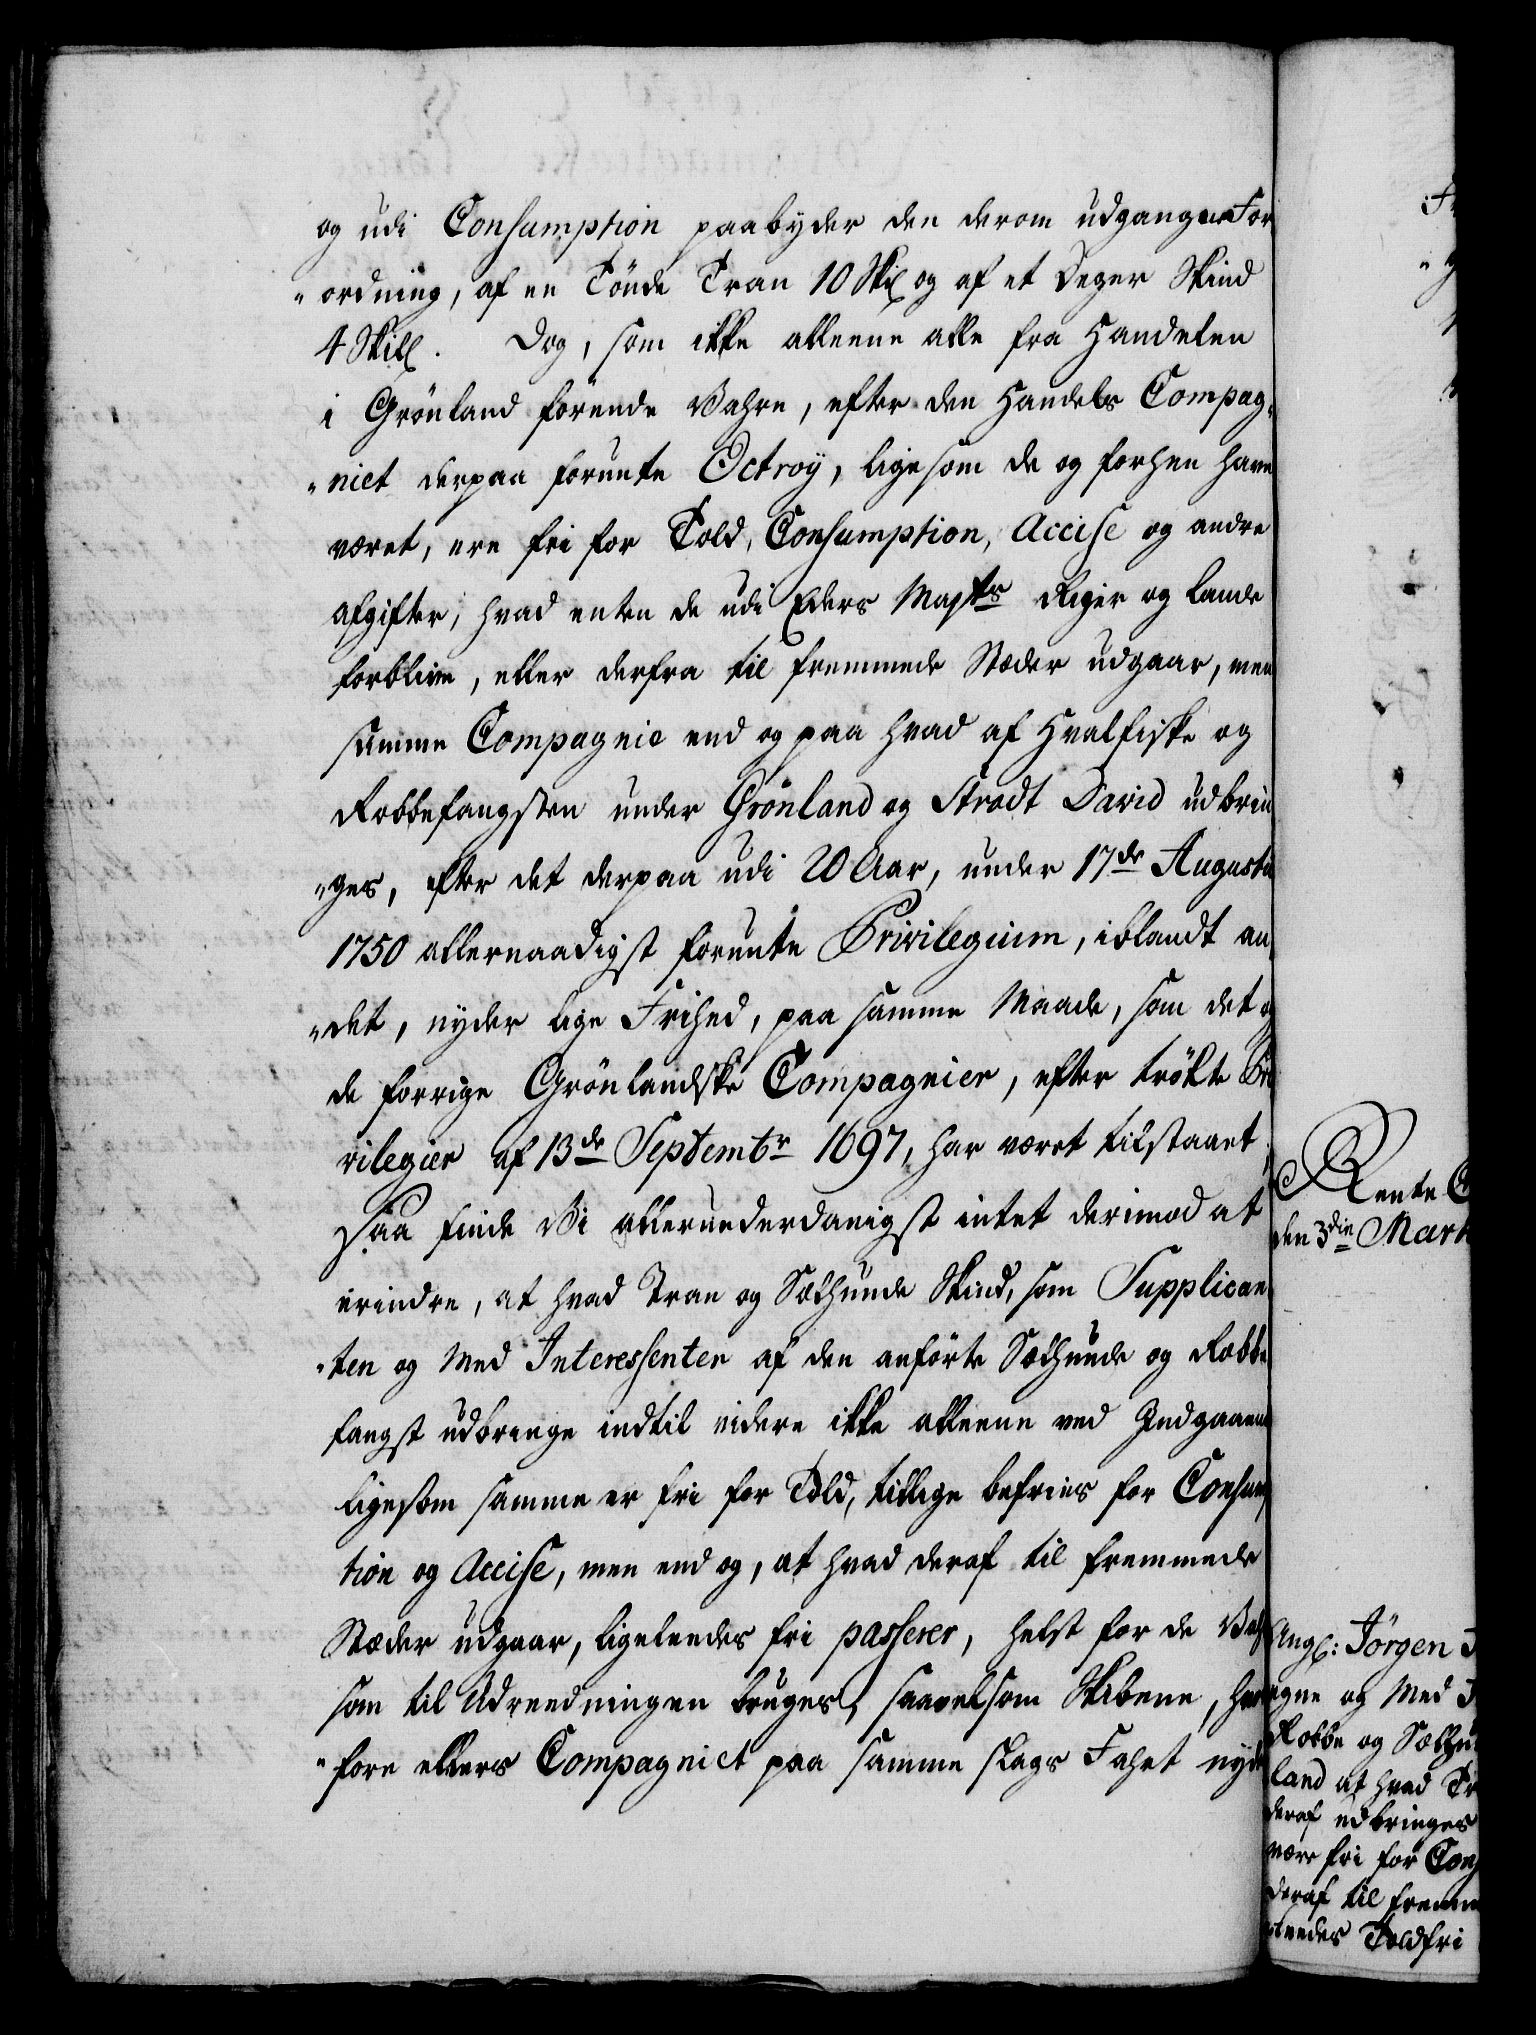 og udi Consumption paabyder den derom udgangne For
"ordning, af en Tönde Tran 10 Skl og af et Deger Skind
4 Skill. Dog, som ikke alleene alle fra Handelen
i Grönland förende Vahre, efter den Handels Compag,
"niet derpaa forunte Octroy, ligesom de og forhen have
været, ere fri for Told, Consumption, Accise og andre
afgifter, hvad enten de udi Eders Majts Riger og Lande
forblive, eller derfra til fremmede Stæder udgaar, men
samme Compagnie end og paa hvad af Hvalfiske og
Robbefangsten under Grönland og Stradt David udbrin
"ges, efter det derpaa udi 20 Aar, under 17de Augusti
1750 allernaadigst forunte Privilegium, iblandt an
"det, nyder lige Frihed, paa samme Maade, som det og
de forrige Grönlandske Compagnier, efter trökte Pri
vilegier af 13de Septembr 1697, har været tilstaaet,
Saa finde Vi allerunderdanigst intet derimod at
erindre, at hvad Tran og Sælhunde Skind, som Supplican
"ten og Med Interessenter af den anförte Sælhunde og Robbe
fangst udbringe indtil videre ikke alleene ved Indgaaende
ligesom samme er fri for Told, tillige befries for Consump
tion og Accise, men end og, at hvad deraf til fremmede
Stæder udgaar, ligeledes fri passerer, helst for de Vahre
som til Udreedningen bruges, saavelsom Skibene, hvor
"fore ellers Compagniet paa samme slags Fahrt nyder
Rente C
den 3die Mart
Angl: Jörgen
egne og Med I
Robbe og Sælhu
land at hvad Tr
deraf udbringes
være fri for Cons
deraf til fremm
leedes Toldfri